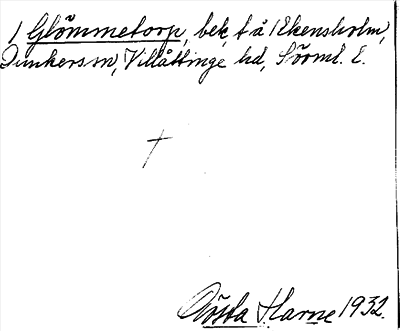 1 Glömmetorp, bek, t å 1 Ekensholm,
Dunkers sn, Villåttinge hd, Sörml. l.
Gösta Harne 1932.